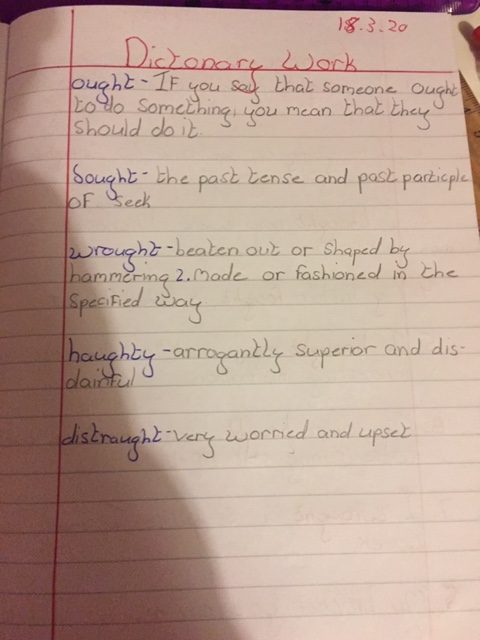 18.3.20
Dictonary Work
ought - IF you say that someone ought
to do something, you mean that they
should do it.
Sought - the past tense and past particple
oF seek
wrought - beaten out or shaped by
hammering 2. made or fashioned in the
specified way
haughty - arrogantly superior and dis-
dainful
distraught - very worried and upset